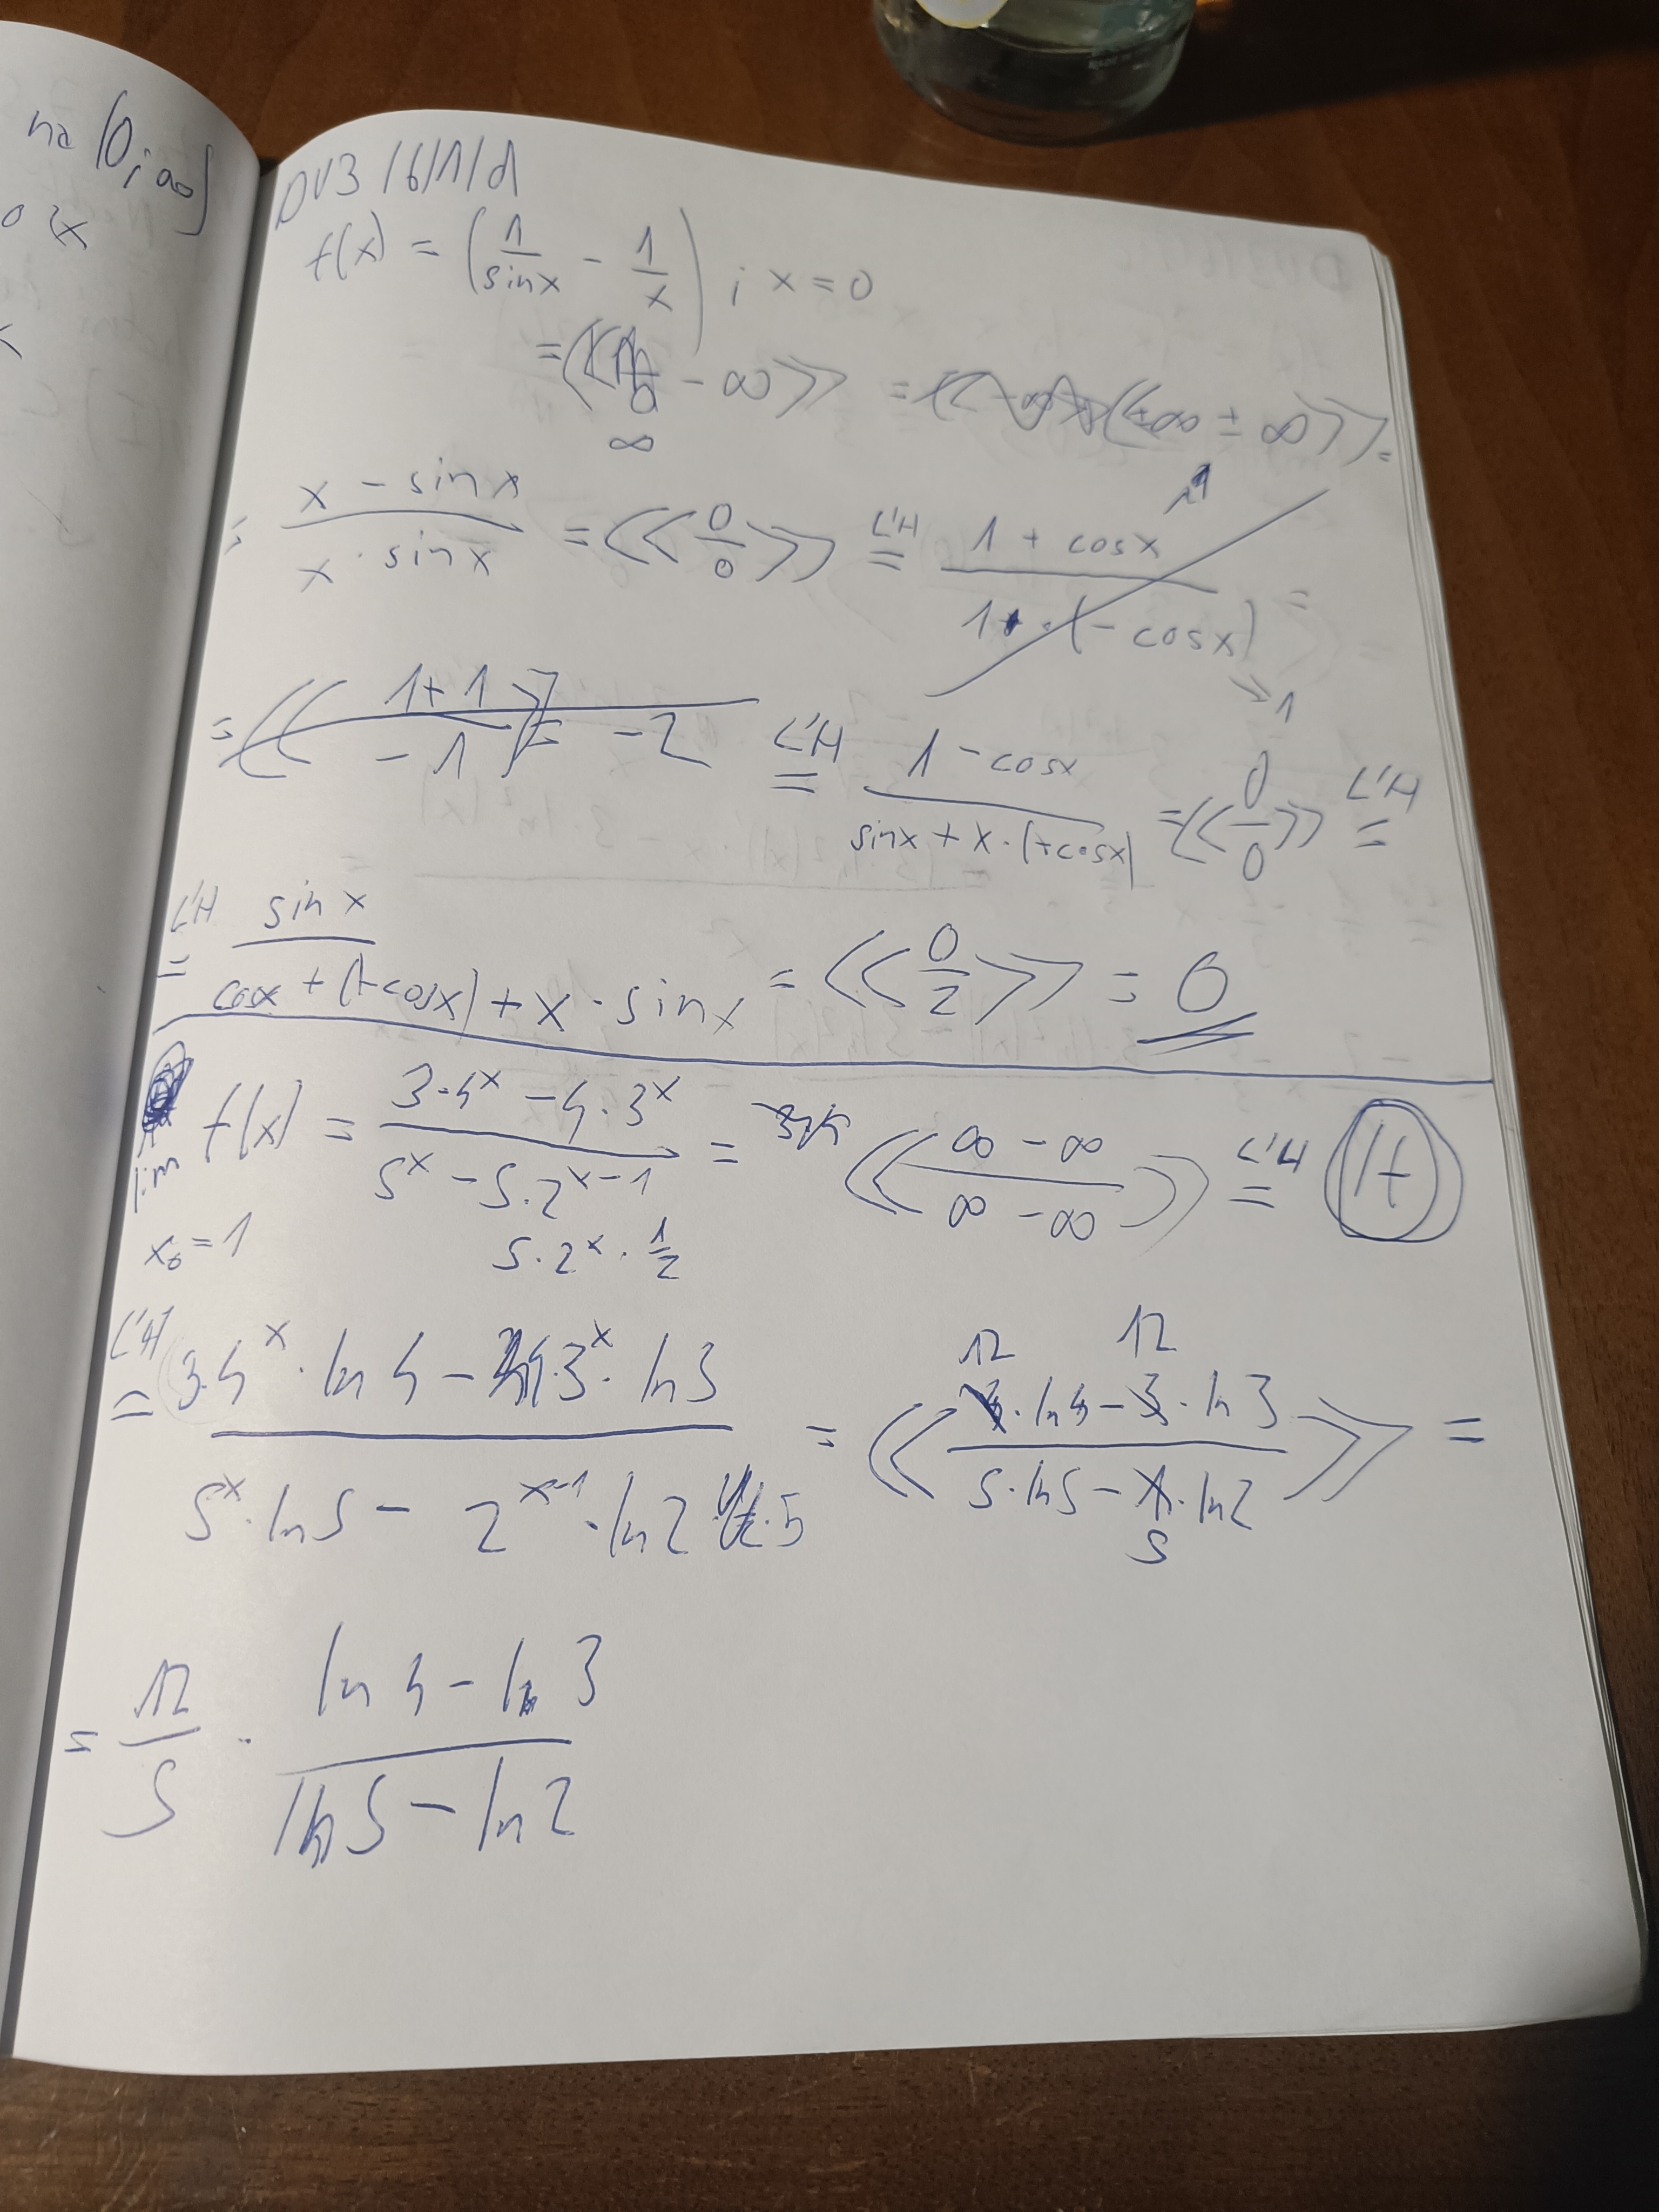 na (0; ∞)
0 2x
x
DU3 /6/1/d
f(x) = (1/sinx - 1/x) ; x = 0
= << ∞ - ∞ >> = << ±∞ ± ∞ >> =
= (x - sinx)/(x · sinx) = << 0/0 >> L'H = (1 + cosx)/(1 · (-cosx)) =
→ 1
= << (1+1)/(-1) >> = -2 L'H = (1 - cosx)/(sinx + x · (+cosx)) = << 0/0 >> L'H =
L'H = sinx/(cosx + (+cosx) + x · sinx) = << 0/2 >> = 0
lim f(x) = (3·4^x - 4·3^x)/(5^x - 5·2^(x-1)) = << (∞ - ∞)/(∞ - ∞) >> L'H =
x₀ = 1
5·2^x · 1/2
L'H = (3·4^x · ln4 - 4·3^x · ln3)/(5^x · ln5 - 2^(x-1) · ln2 · 5) = << (12 · ln4 - 12 · ln3)/(5·ln5 - 5 · ln2) >> =
= 12/5 · (ln4 - ln3)/(ln5 - ln2)